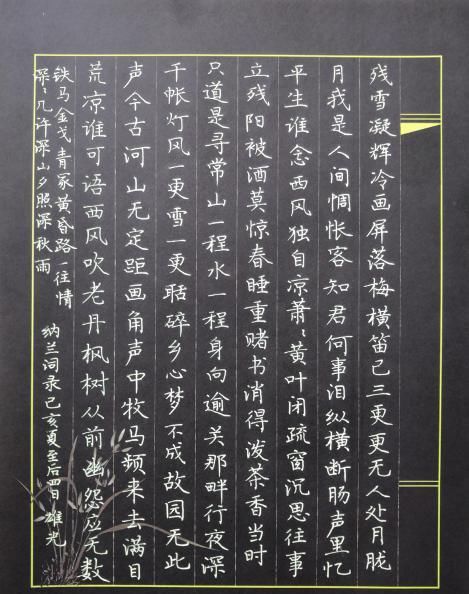 残雪凝辉冷画屏落梅横笛已三更更无人处月胧
月我是人间惆怅客知君何事泪纵横断肠声里忆
平生谁念西风独自凉萧〻黄叶闭疏窗沉思往事
立残阳被酒莫惊春睡重赌书消得泼茶香当时
只道是寻常山一程水一程身向逾关那畔行夜深
千帐灯风一更雪一更聒碎乡心梦不成故园无此
声今古河山无定距画角声中牧马频来去满目
荒凉谁可语西风吹老丹枫树从前幽怨应无数
铁马金戈青冢黄昏路一往情
深〻几许深山夕照深秋雨
纳兰词录己亥夏至后四日雄光